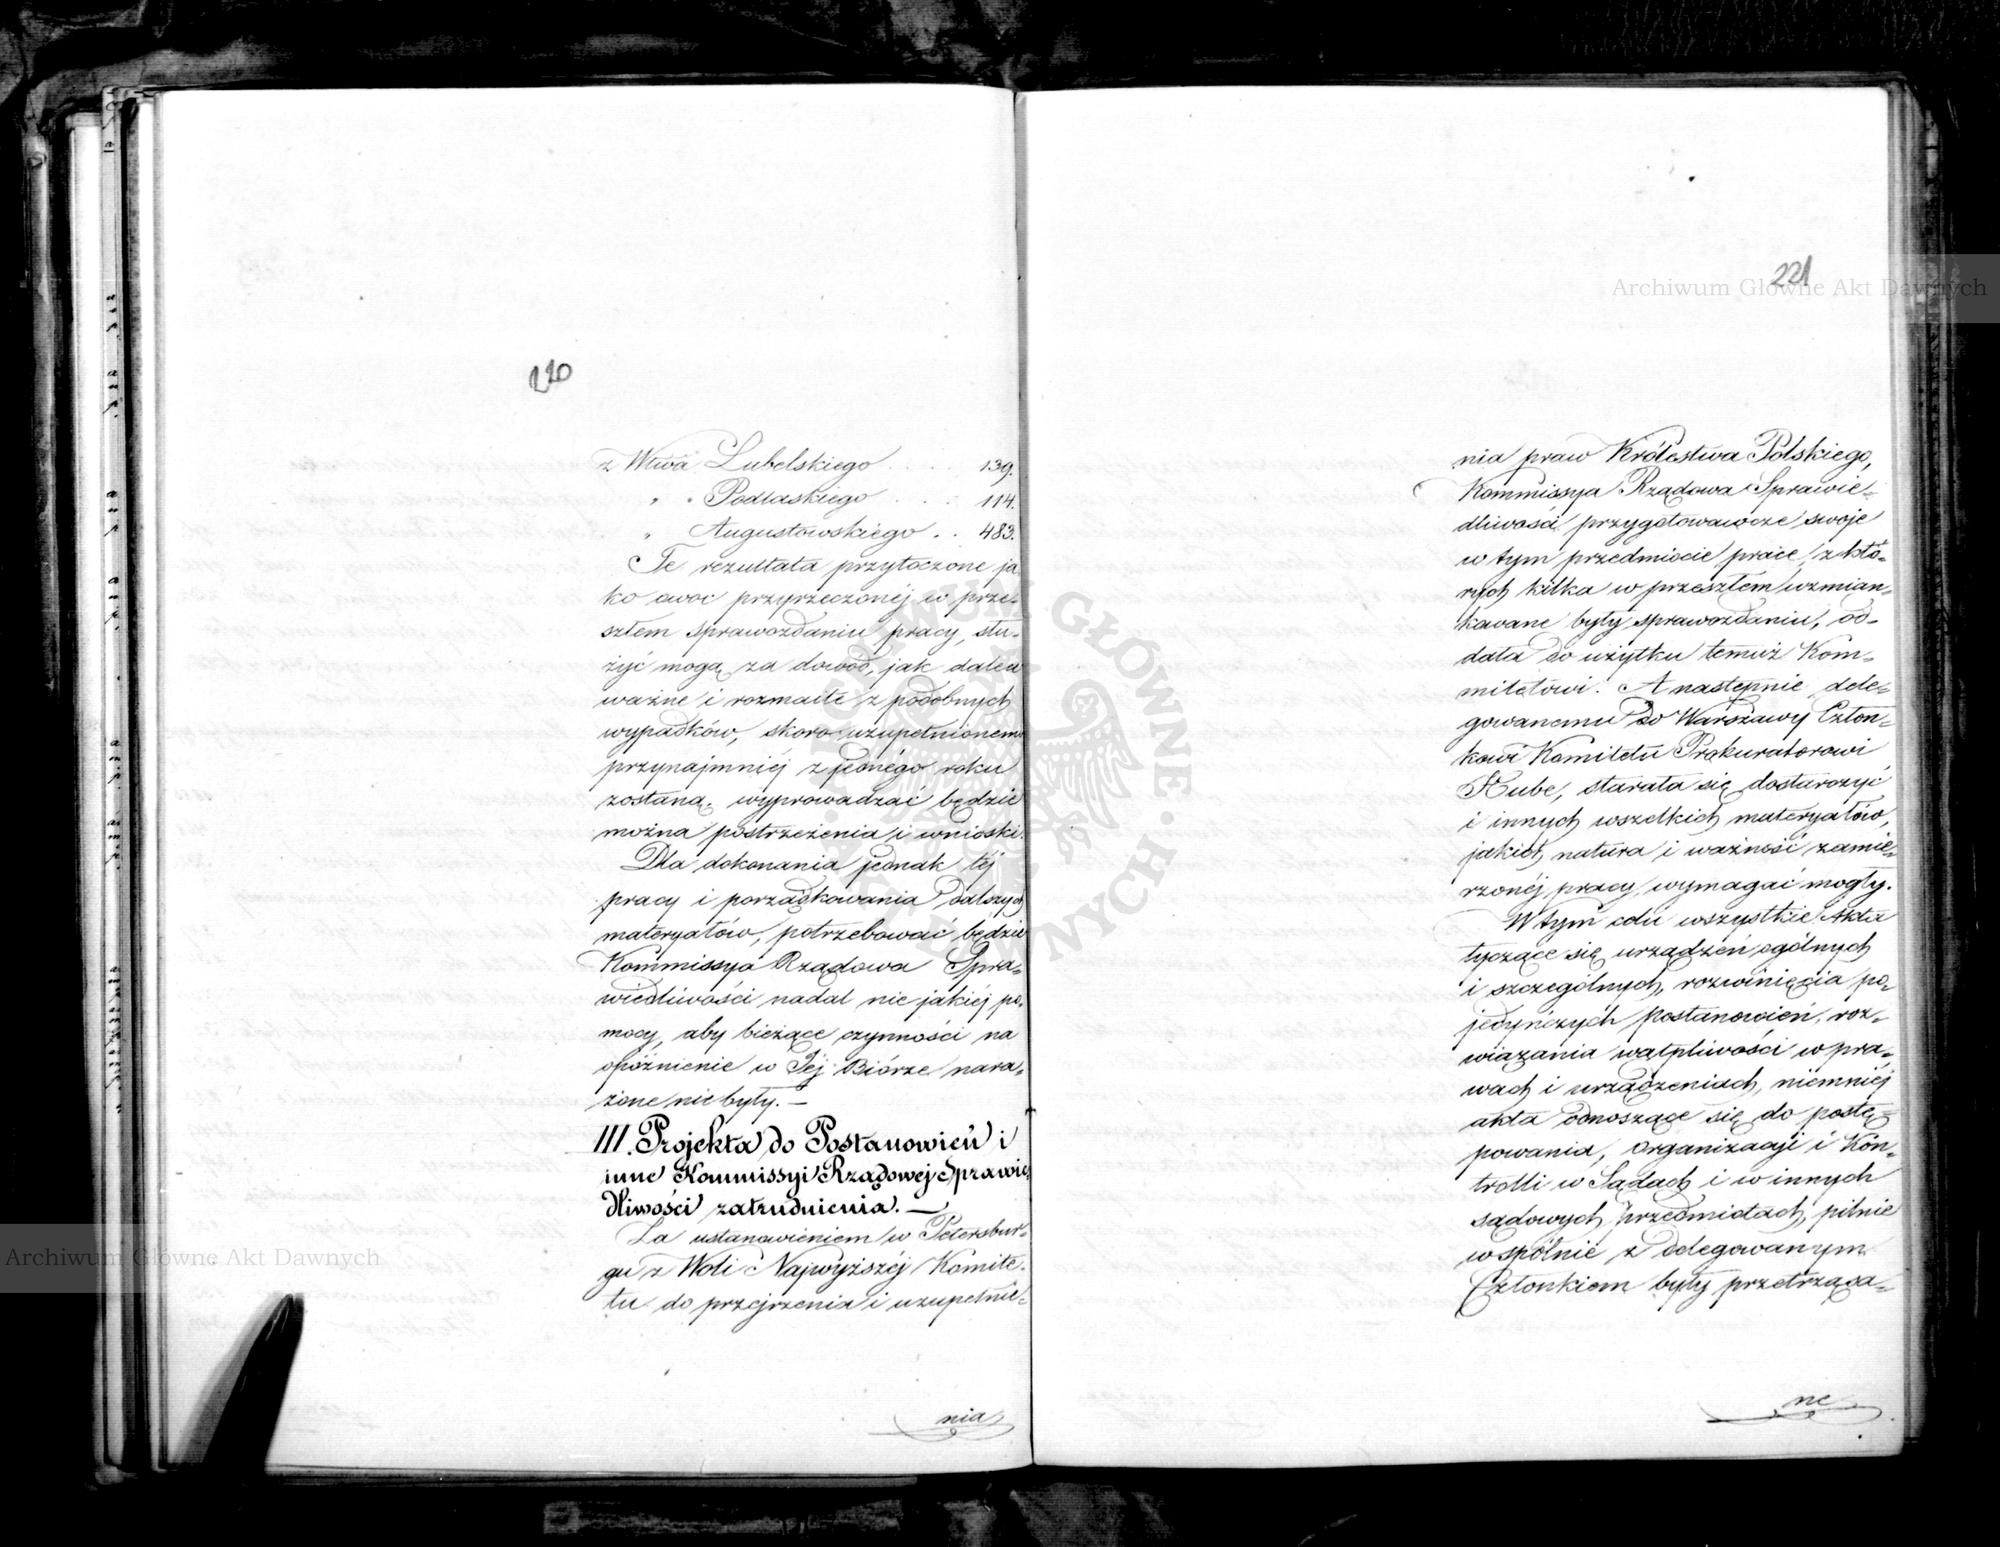 220
z Wtwa Lubelskiego . . . . 139.
" " Podlaskiego . . . . 114.
" Augustowskiego . . 483.
Te rezultata przytoczone ja
ko owoc przyrzeczonéj w prze-
szłem sprawozdaniu pracy, słu-
żyć mogą za dowód, jak dalece
ważne i rozmaite z podobnych
wypadków, skoro uzupełnionemi
przynajmniéj z jednégo roku
zostaną, wyprowadzać będzie
można postrzeżenia i wnioski.
Dla dokonania jednak téj
pracy i porządkowania dalszych
materyałów, potrzebować będzie
Kommissya Rządowa Spra-
wiedliwości nadal nie jakiéj po-
mocy, aby bieżące czynności na
opóźnienie w Jéj Biórze nara-
żone nie były. —
III. Projekta do Postanowień i
inne Kommissyi Rządowej Sprawie-
dliwości zatrudnienia. —
Za ustanowieniem w Petersbur-
gu z Woli Najwyższéj Komite-
tu do przejrzenia i uzupełnie-
nia
221
nia praw Królestwa Polskiego,
Kommissya Rządowa Sprawie-
dliwości przygotowawcze swoje
w tym przedmiocie prace, z któ-
rych kilka w przeszłem wzmian-
kowane były sprawozdaniu, od-
dała do użytku temuż Kom-
mitetowi. A następnie dele-
gowanemu do Warszawy Człon-
kowi Komitetu Prokuratorowi
Hube, starała się dostarczyć
i innych wszelkich materyałów,
jakich natura i ważność zamie-
rzonéj pracy wymagać mogły.
W tym celu wszystkie Akta
tyczące się urządzeń ogólnych
i szczególnych, rozwinięcia po-
jedyńczych postanowień, roz-
wiązania wątpliwości w pra-
wach i urządzeniach, niemniéj
akta odnoszące się do postę-
powania, organizacyi i Kon-
trolli w Sądach i w innych
sądowych przedmiotach, pilnie
wspólnie z delegowanym
Członkiem były przetrząsa-
ne
Archiwum Główne Akt Dawnych
Archiwum Główne Akt Dawnych